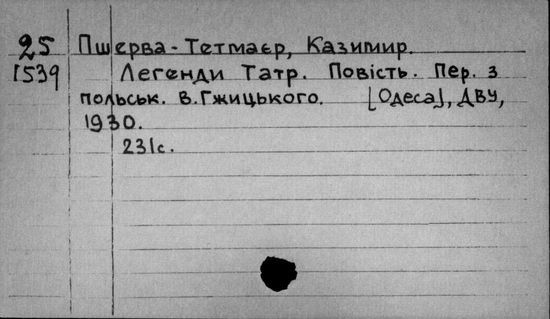 25 Пшерва-Тетмаєр, Казимир.
1539 Легенди Татр. Повість. Пер. з
польськ. В. Гжицького. [Одеса], ДВУ,
1930.
231с.